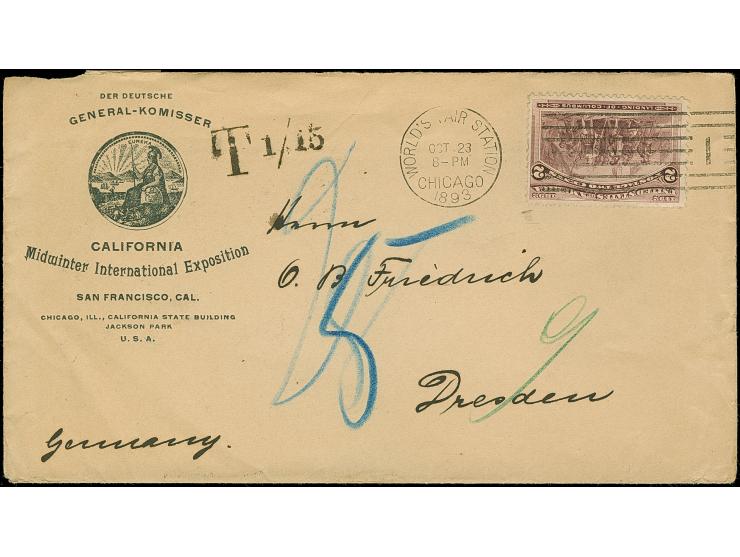 DER DEUTSCHE
GENERAL-KOMISSER
EUREKA
CALIFORNIA
Midwinter International Exposition
SAN FRANCISCO, CAL.
CHICAGO, ILL., CALIFORNIA STATE BUILDING
JACKSON PARK
U. S. A.
T 1/15
WORLD'S FAIR STATION
OCT. 23
8-PM
CHICAGO
1893
1
LANDING OF COLUMBUS
2 2
Herrn
O. B. Friedrich
Dresden
Germany.
9